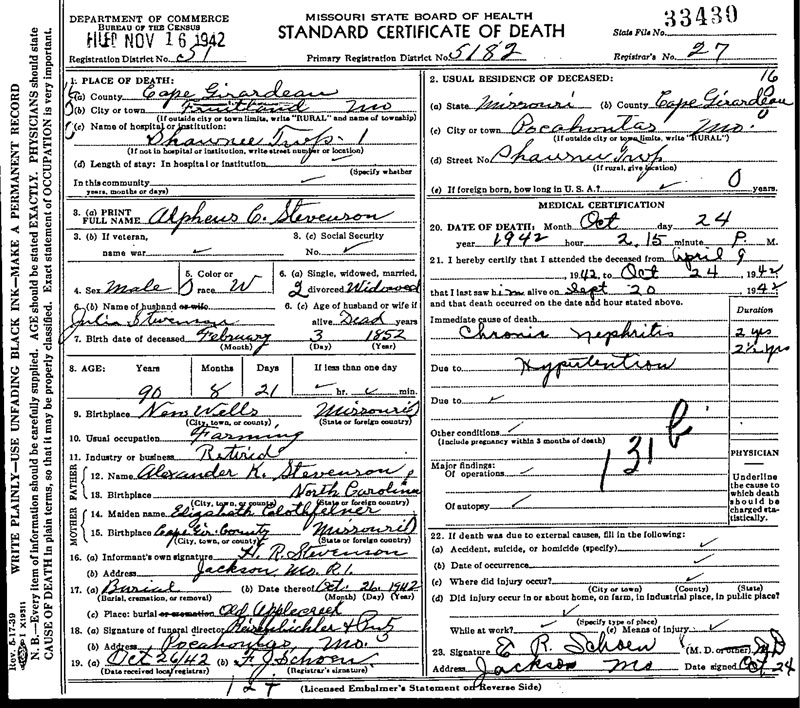 WRITE PLAINLY—USE UNFADING BLACK INK—MAKE A PERMANENT RECORD
N. B.—Every item of information should be carefully supplied. AGE should be stated EXACTLY. PHYSICIANS should state
CAUSE OF DEATH in plain terms, so that it may be properly classified. Exact statement of OCCUPATION is very important.
Rev. 5-17-39
I X19511
DEPARTMENT OF COMMERCE
BUREAU OF THE CENSUS
FILED NOV 16 1942
Registration District No. 51
MISSOURI STATE BOARD OF HEALTH
STANDARD CERTIFICATE OF DEATH
Primary Registration District No. 5182
State File No. 33430
Registrar's No. 27
1. PLACE OF DEATH:
(a) County Cape Girardeau
(b) City or town Fruitland Mo
(If outside city or town limits, write "RURAL" and name of township)
(c) Name of hospital or institution:
Shawnee Twp. 1
(If not in hospital or institution, write street number or location)
(d) Length of stay: In hospital or institution
(Specify whether
In this community
years, months or days)
3. (a) PRINT FULL NAME Alpheus C. Stevenson
3. (b) If veteran, name war
3. (c) Social Security No.
4. Sex Male
5. Color or race W
6. (a) Single, widowed, married, divorced Widowed
6. (b) Name of husband or wife
Julia Stevenson
6. (c) Age of husband or wife if alive Dead years
7. Birth date of deceased February 3 1852
(Month) (Day) (Year)
8. AGE: Years Months Days If less than one day
90 8 21 hr. min.
9. Birthplace New Wells Missouri
(City, town, or county) (State or foreign country)
10. Usual occupation Farming
11. Industry or business Retired
FATHER
12. Name Alexander K. Stevenson
13. Birthplace North Carolina
(City, town, or county) (State or foreign country)
MOTHER
14. Maiden name Elizabeth Clothfelner
15. Birthplace Cape Gir. County Missouri
(City, town, or county) (State or foreign country)
16. (a) Informant's own signature H. R. Stevenson
(b) Address Jackson, Mo. R1.
17. (a) Burial (b) Date thereof Oct. 26, 1942
(Burial, cremation, or removal) (Month) (Day) (Year)
(c) Place: burial or cremation Old Applecreek
18. (a) Signature of funeral director
(b) Address Pocahontas, Mo.
19. (a) Oct 26/42 (b) F. J. Schoen
(Date received local registrar) (Registrar's signature)
2. USUAL RESIDENCE OF DECEASED: 16
(a) State Missouri (b) County Cape Girardeau
(c) City or town Pocahontas Mo.
(If outside city or town limits, write "RURAL")
(d) Street No. Shawnee Twp.
(If rural, give location)
(e) If foreign born, how long in U. S. A.? 0 years.
MEDICAL CERTIFICATION
20. DATE OF DEATH: Month Oct day 24
year 1942 hour 2.15 minute P. M.
21. I hereby certify that I attended the deceased from April 9
, 1942, to Oct 24, 1942
that I last saw him alive on Sept 20, 1942
and that death occurred on the date and hour stated above.
Duration
Immediate cause of death
Chronic nephritis 2 yrs
2½ yrs
Due to Hypertention
Due to
Other conditions
(Include pregnancy within 3 months of death)
131 b
Major findings:
Of operations
Of autopsy
PHYSICIAN
Underline the cause to which death should be charged statistically.
22. If death was due to external causes, fill in the following:
(a) Accident, suicide, or homicide (specify)
(b) Date of occurrence
(c) Where did injury occur?
(City or town) (County) (State)
(d) Did injury occur in or about home, on farm, in industrial place, in public place?
(Specify type of place)
While at work? (e) Means of injury
23. Signature E R. Schoen (M. D. or other) MD
Address Jackson Mo Date signed Oct. 24
(Licensed Embalmer's Statement on Reverse Side)